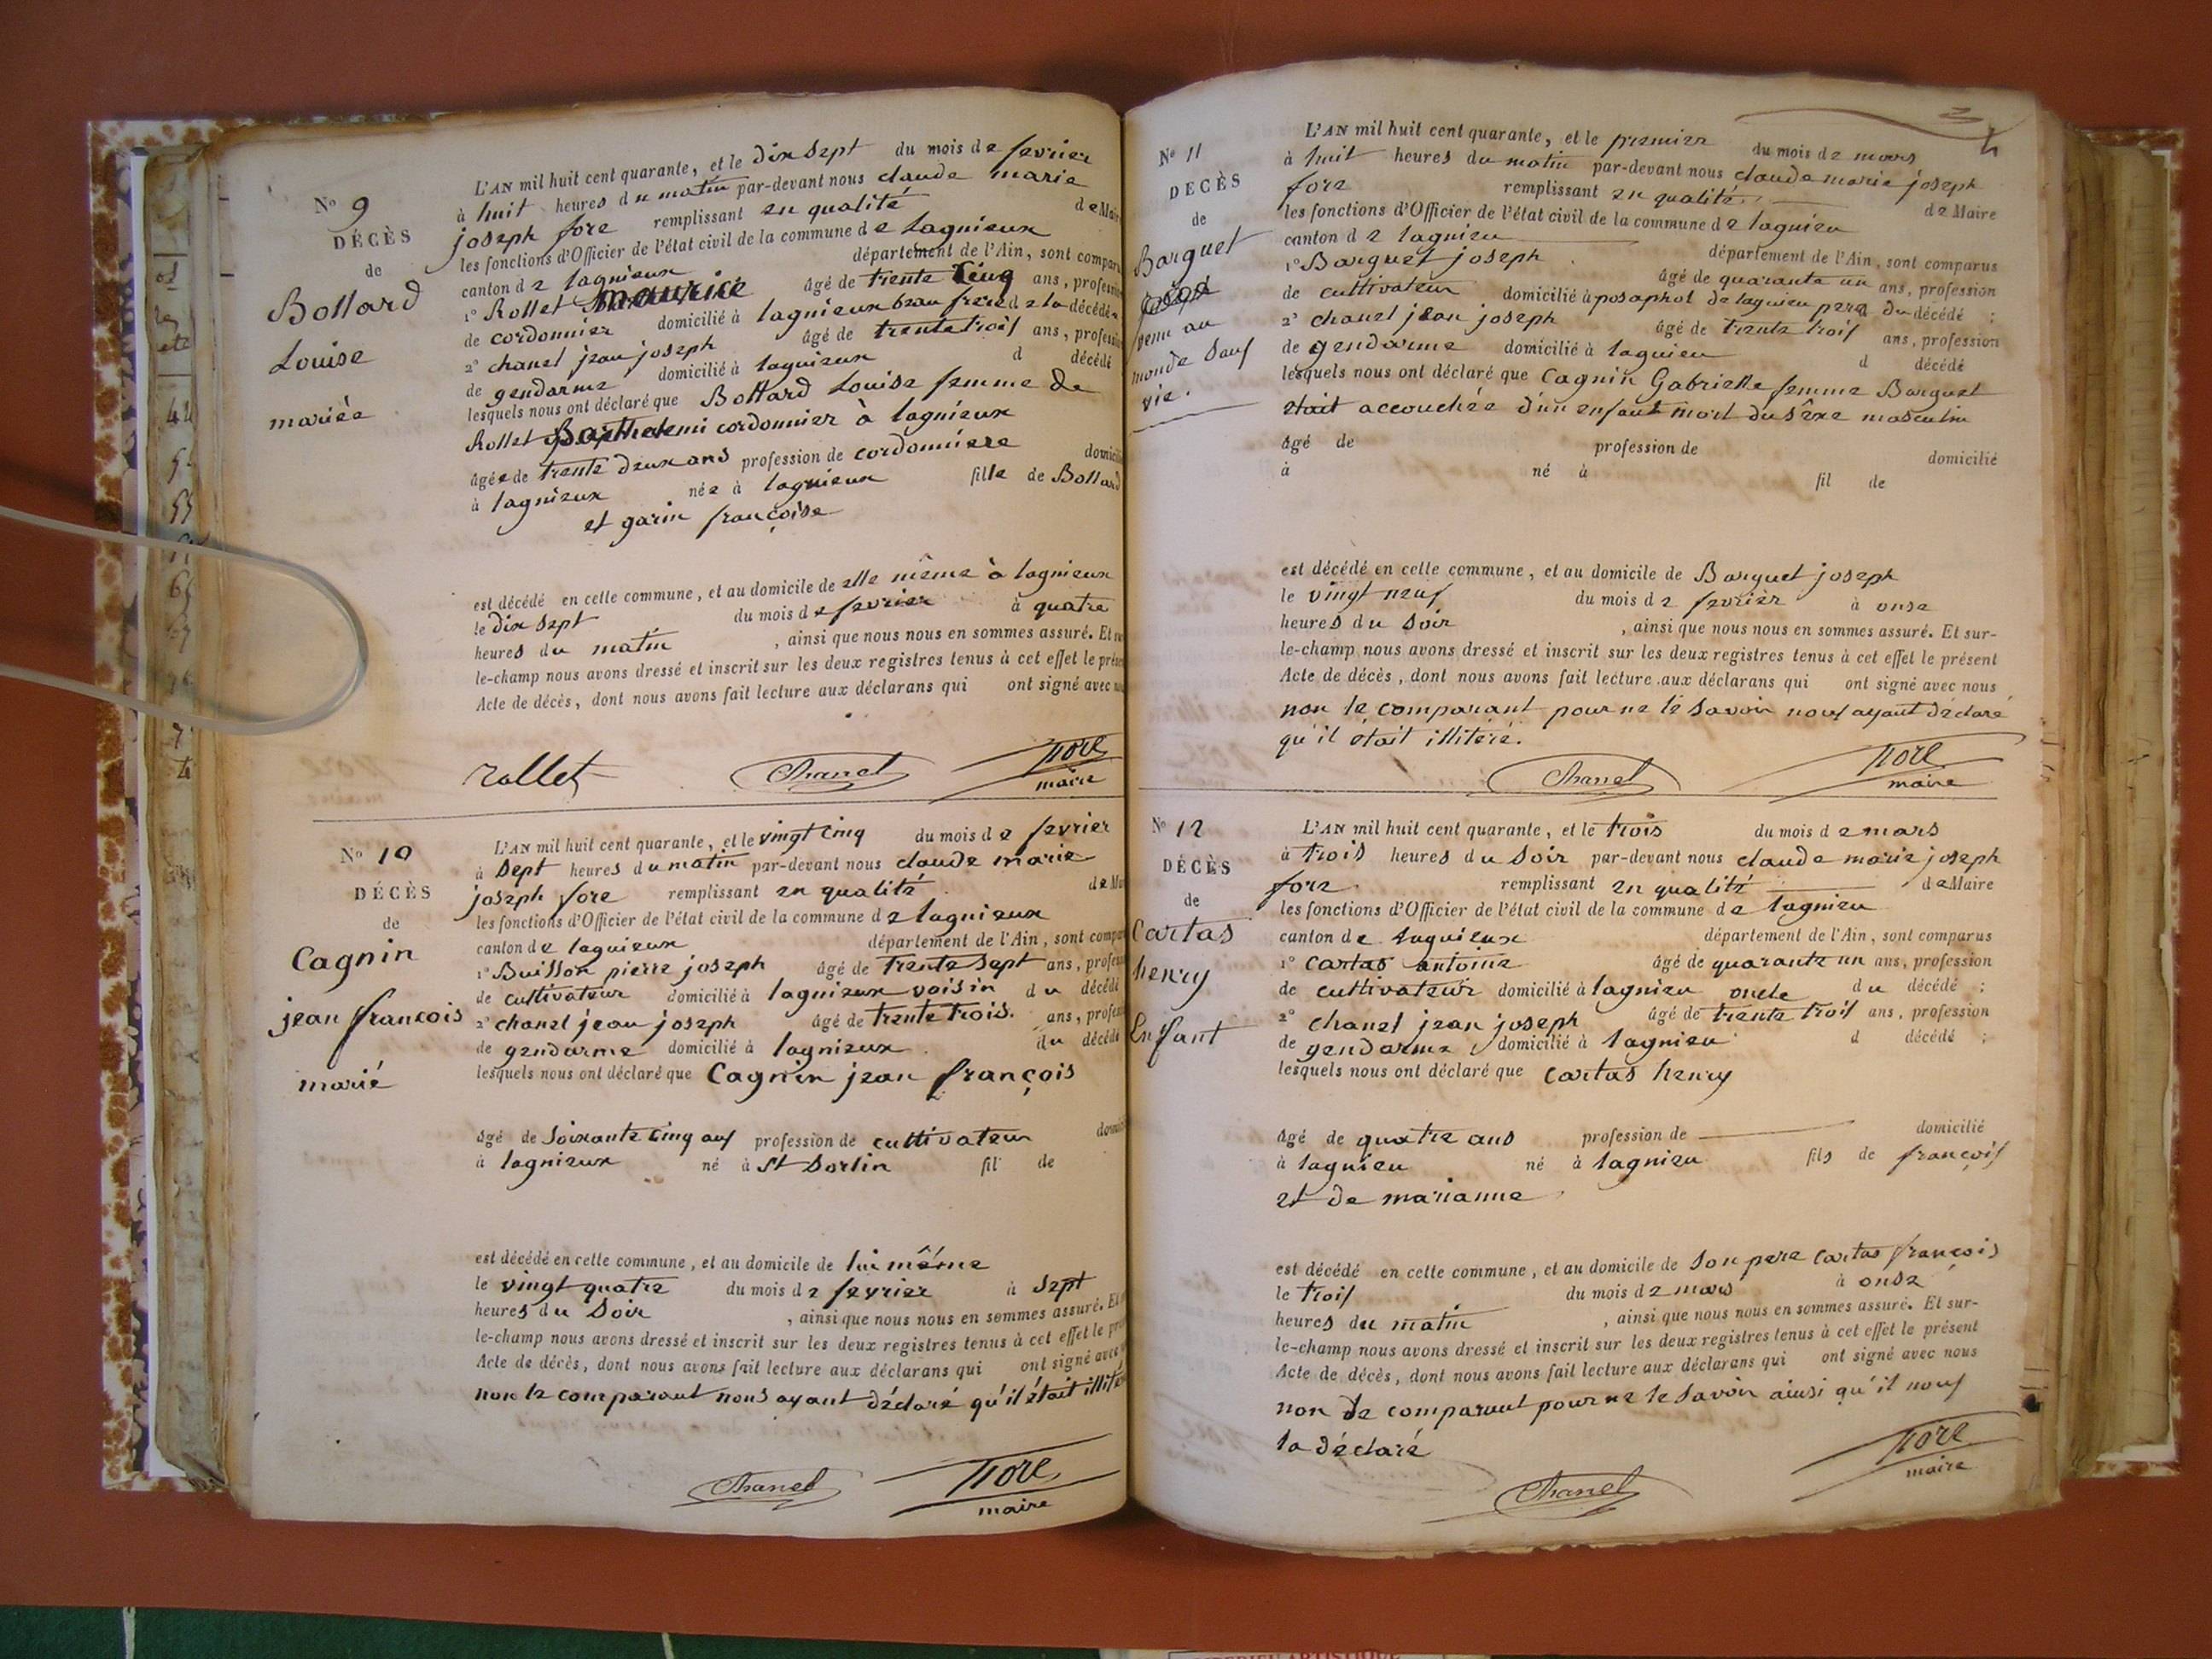 N° 9
DÉCÈS
de
Bottard
Louise
mariée
L'AN mil huit cent quarante, et le dix sept du mois de fevrier
à huit heures du matin par-devant nous claude marie
joseph fore remplissant en qualité de Mai
les fonctions d'Officier de l'état civil de la commune de Lagnieux
canton de lagnieux département de l'Ain, sont compar
1° Rollet maurice âgé de trente cinq ans, profess
de cordonnier domicilié à lagnieux beau frere de la décédée
2° chanel jean joseph âgé de trente trois ans, profess
de gendarme domicilié à lagnieux d décédé
lesquels nous ont déclaré que Bottard Louise femme de
Rollet Barthelemi cordonnier à lagnieux
âgée de trente deux ans profession de cordonniere domici
à lagnieux née à lagnieux fille de Bottard
et garin françoise
est décédé en celle commune, et au domicile de elle même à lagnieux
le dix sept du mois de fevrier à quatre
heures du matin , ainsi que nous nous en sommes assuré. Et
le-champ nous avons dressé et inscrit sur les deux registres tenus à cet effet le prés
Acte de décès, dont nous avons fait lecture aux déclarans qui ont signé avec
rollet Chanel Fore
maire
N° 10
DÉCÈS
de
Cagnin
jean françois
marié
L'AN mil huit cent quarante, et le vingt cinq du mois de fevrier
à sept heures du matin par-devant nous claude marie
joseph fore remplissant en qualité de Ma
les fonctions d'Officier de l'état civil de la commune de lagnieux
canton de lagnieux département de l'Ain, sont compar
1° Buisson pierre joseph âgé de trente sept ans, profess
de cultivateur domicilié à lagnieux voisin du décédé
2° chanel jean joseph âgé de trente trois. ans, profess
de gendarme domicilié à lagnieux du décédé
lesquels nous ont déclaré que Cagnin jean françois
âgé de soixante cinq ans profession de cultivateur domici
à lagnieux né à St Sorlin fil de
est décédé en celle commune, et au domicile de lui même
le vingt quatre du mois de fevrier à sept
heures du soir , ainsi que nous nous en sommes assuré. Et
le-champ nous avons dressé et inscrit sur les deux registres tenus à cet effet le pr
Acte de décès, dont nous avons fait lecture aux déclarans qui ont signé avec
non le comparant nous ayant déclaré qu'il était illité
Chanel Fore
maire
N° 11
DÉCÈS
de
Barquet
venu au
monde sans
vie.
L'AN mil huit cent quarante, et le premier du mois de mars
à huit heures du matin par-devant nous claude marie joseph
fore remplissant en qualité de Maire
les fonctions d'Officier de l'état civil de la commune de lagnieu
canton de lagnieu département de l'Ain, sont comparus
1° Barquet joseph âgé de quarante un ans, profession
de cultivateur domicilié à posaphol de lagnieu pere du décédé ;
2° chanel jean joseph âgé de trente trois ans, profession
de gendarme domicilié à lagnieu d décédé
lesquels nous ont déclaré que Cagnin Gabrielle femme Barquet
etait accouchée d'un enfant mort du sêxe masculin
âgé de profession de domicilié
à né à fil de
est décédé en celle commune, et au domicile de Barquet joseph
le vingt neuf du mois de fevrièr à onse
heures du soir , ainsi que nous nous en sommes assuré. Et sur-
le-champ nous avons dressé et inscrit sur les deux registres tenus à cet effet le présent
Acte de décès, dont nous avons fait lecture aux déclarans qui ont signé avec nous
non le comparant pour ne le savoir nous ayant déclaré
qu'il était illitéré.
Chanel Fore
maire
N° 12
DÉCÈS
de
Cartas
henry
Enfant
L'AN mil huit cent quarante, et le trois du mois de mars
à trois heures du soir par-devant nous claude marie joseph
fore remplissant en qualité de Maire
les fonctions d'Officier de l'état civil de la commune de lagnieu
canton de Lagnieux département de l'Ain, sont comparus
1° cartas antoine âgé de quarante un ans, profession
de cultivateur domicilié à lagnieu oncle du décédé ;
2° chanel jean joseph âgé de trente trois ans, profession
de gendarme domicilié à lagnieu d décédé ;
lesquels nous ont déclaré que cartas henry
âgé de quatre ans profession de domicilié
à lagnieu né à lagnieu fils de françois
et de marianne
est décédé en celle commune, et au domicile de son pere cartas françois
le trois du mois de mars à onse
heures du matin , ainsi que nous nous en sommes assuré. Et sur-
le-champ nous avons dressé et inscrit sur les deux registres tenus à cet effet le présent
Acte de décès, dont nous avons fait lecture aux déclarans qui ont signé avec nous
non le comparant pour ne le savoir ainsi qu'il nous
la déclaré
Chanel Fore
maire